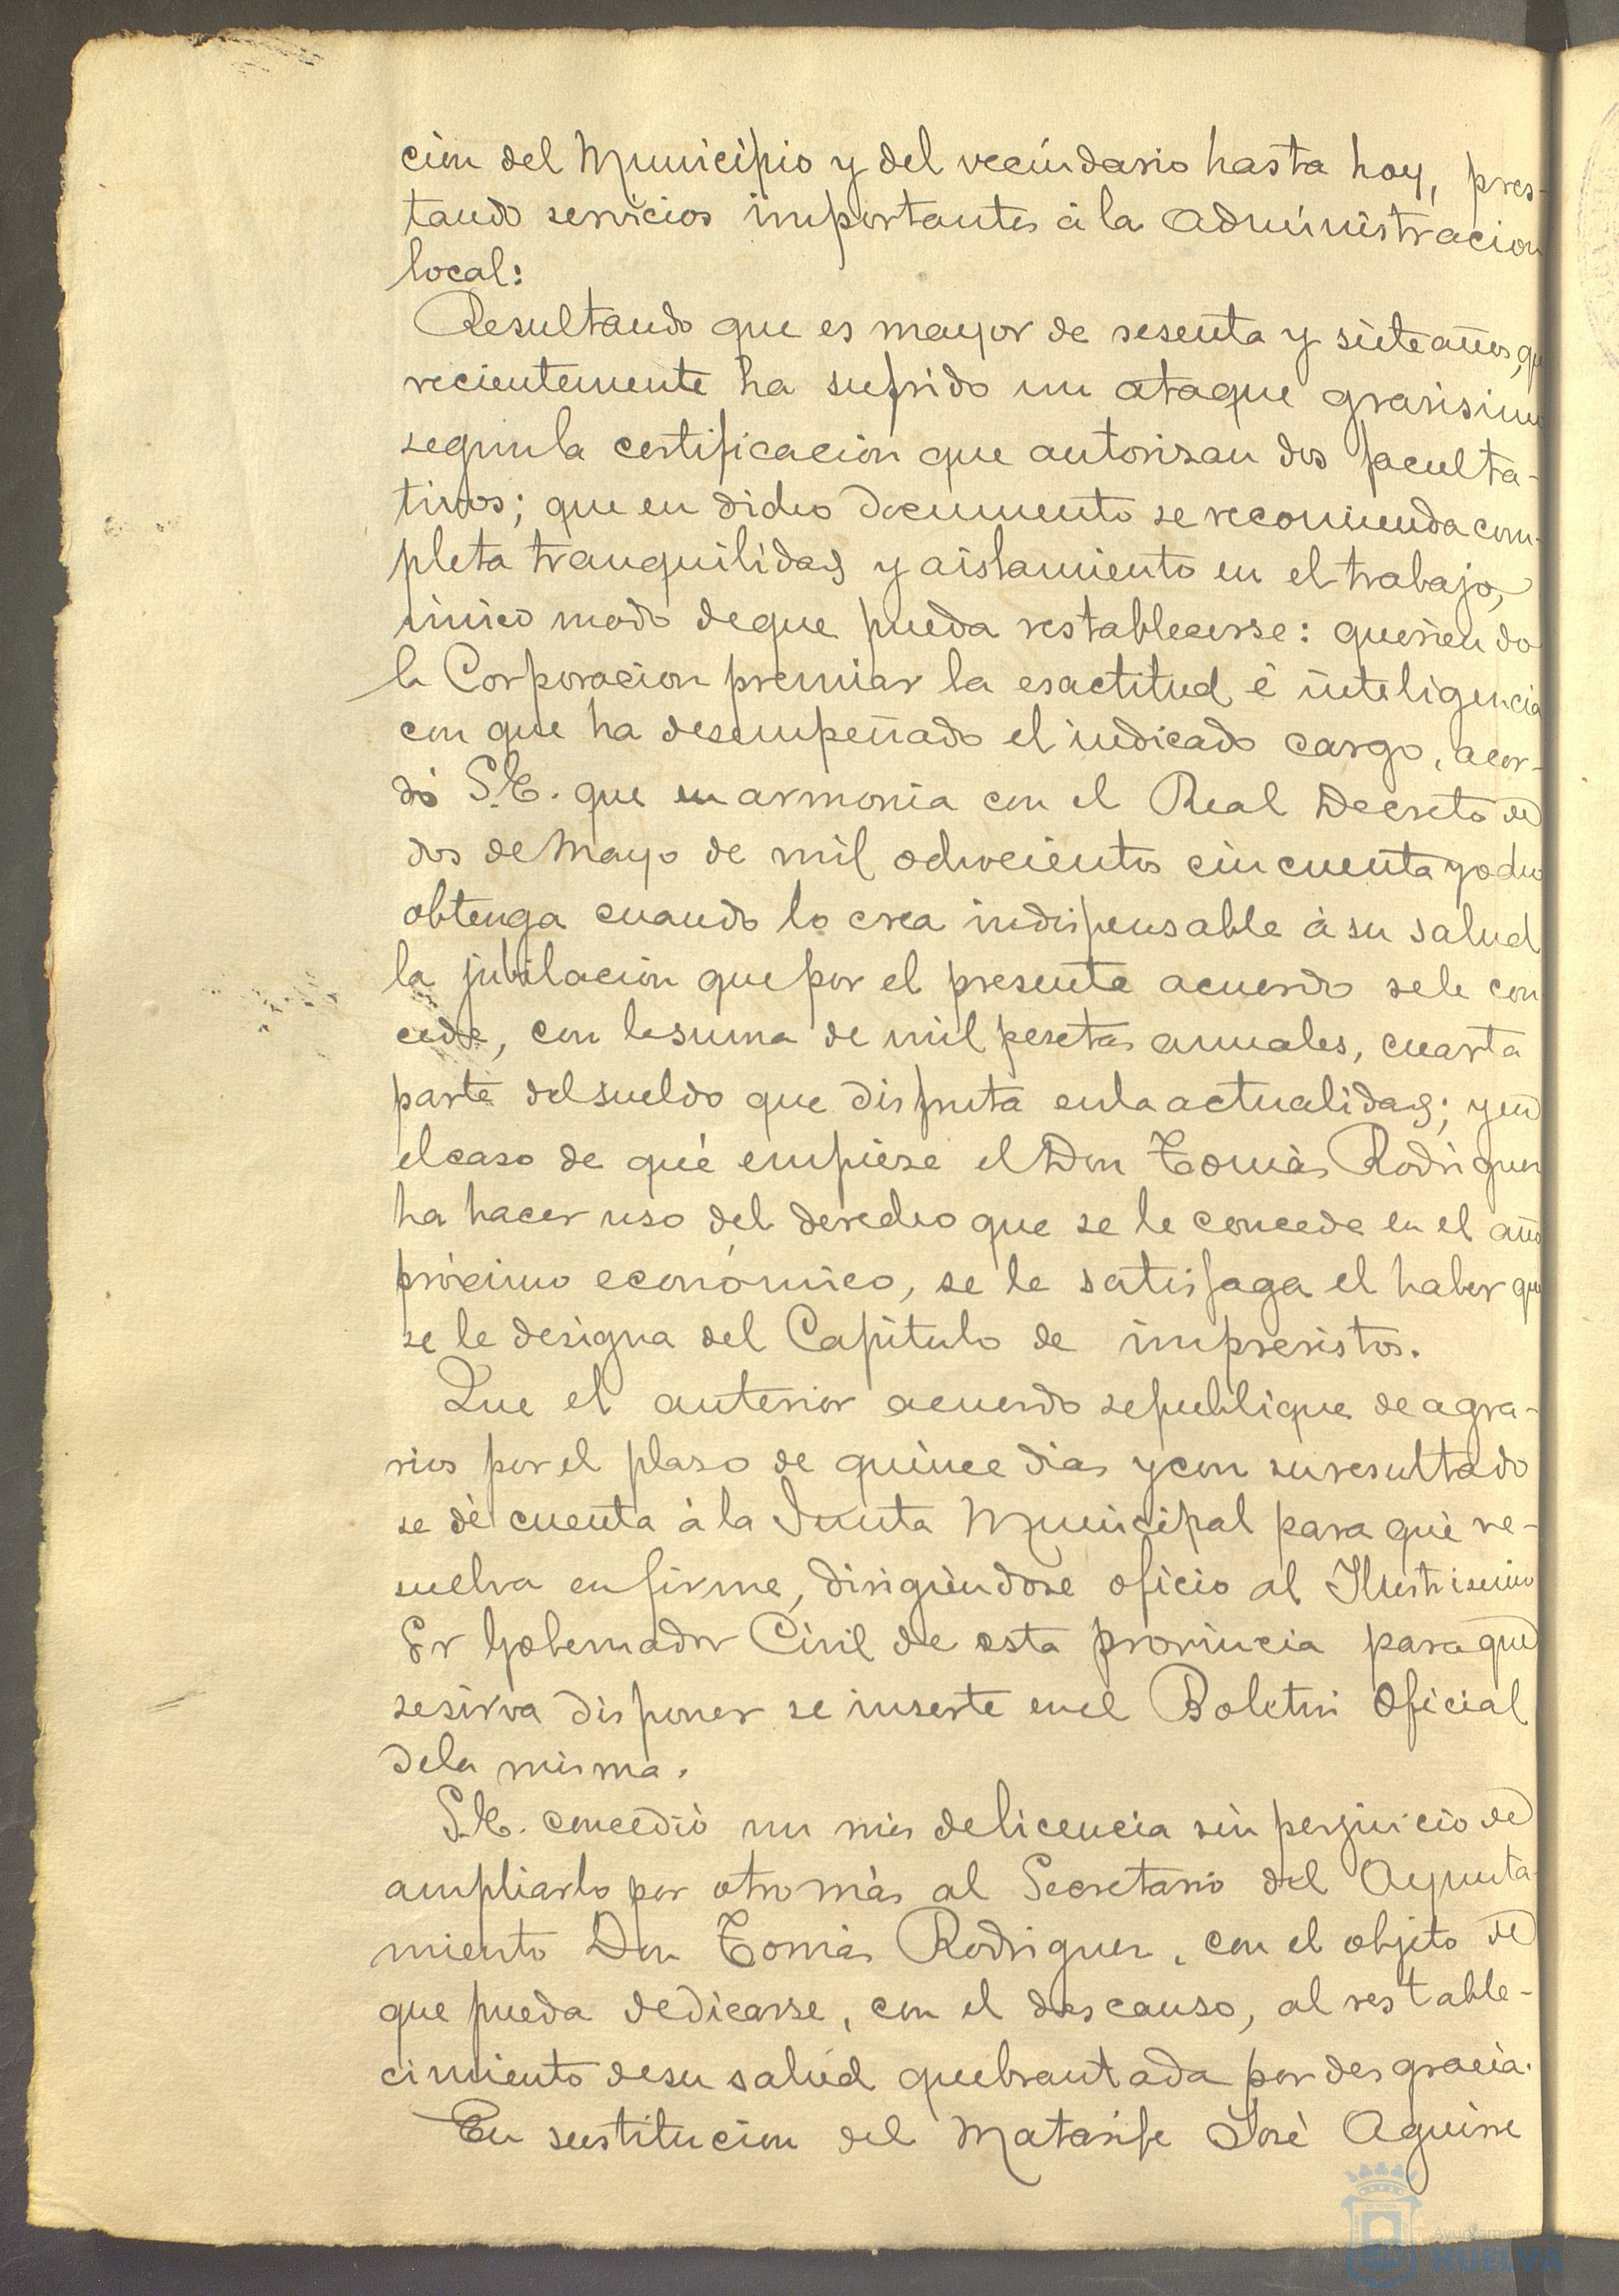 cion del Municipio y del vecindario hasta hoy, pres-
tando servicios importantes á la administracion
local:
Resultando que es mayor de sesenta y siete años, que
recientemente ha sufrido un ataque gravisimo
segun la certificacion que autorisan dos faculta-
tivos; que en dicho documento se recomienda com-
pleta tranquilidad y aislamiento en el trabajo,
único modo de que pueda restablecerse: queriendo
la Corporacion premiar la esactitud é inteligencia
con que ha desempeñado el indicado cargo, acor-
dó S.E. que en armonia con el Real Decreto de
dos de Mayo de mil ochocientos cincuenta y ocho
obtenga cuando lo crea indispensable á su salud
la jubilacion que por el presente acuerdo se le con
cede, con la suma de mil pesetas anuales, cuarta
parte del sueldo que disfruta en la actualidad; y en
el caso de qué empiese el Don Tomás Rodriguez
ha hacer uso del derecho que se le concede en el año
próximo económico, se le satisfaga el haber que
se le designa del Capitulo de imprevistos.
Que el anterior acuerdo se publique de agra-
vios por el plaso de quince dias y con su resultado
se dé cuenta á la Junta Municipal para qué re-
suelva en firme, dirigiéndose oficio al Ilustrisimo
Sr Gobernador Civil de esta provincia para que
se sirva disponer se inserte en el Boletin Oficial
de la misma.
S.E. concedió un mes de licencia sin perjuicio de
ampliarlo por otro más al Secretario del Ayunta
miento Don Tomás Rodriguez, con el objeto de
que pueda dedicarse, con el descanso, al restable-
cimiento de su salud quebrantada por desgracia.
En sustitucion del Matarife José Aguirre
Ayuntamiento
HUELVA